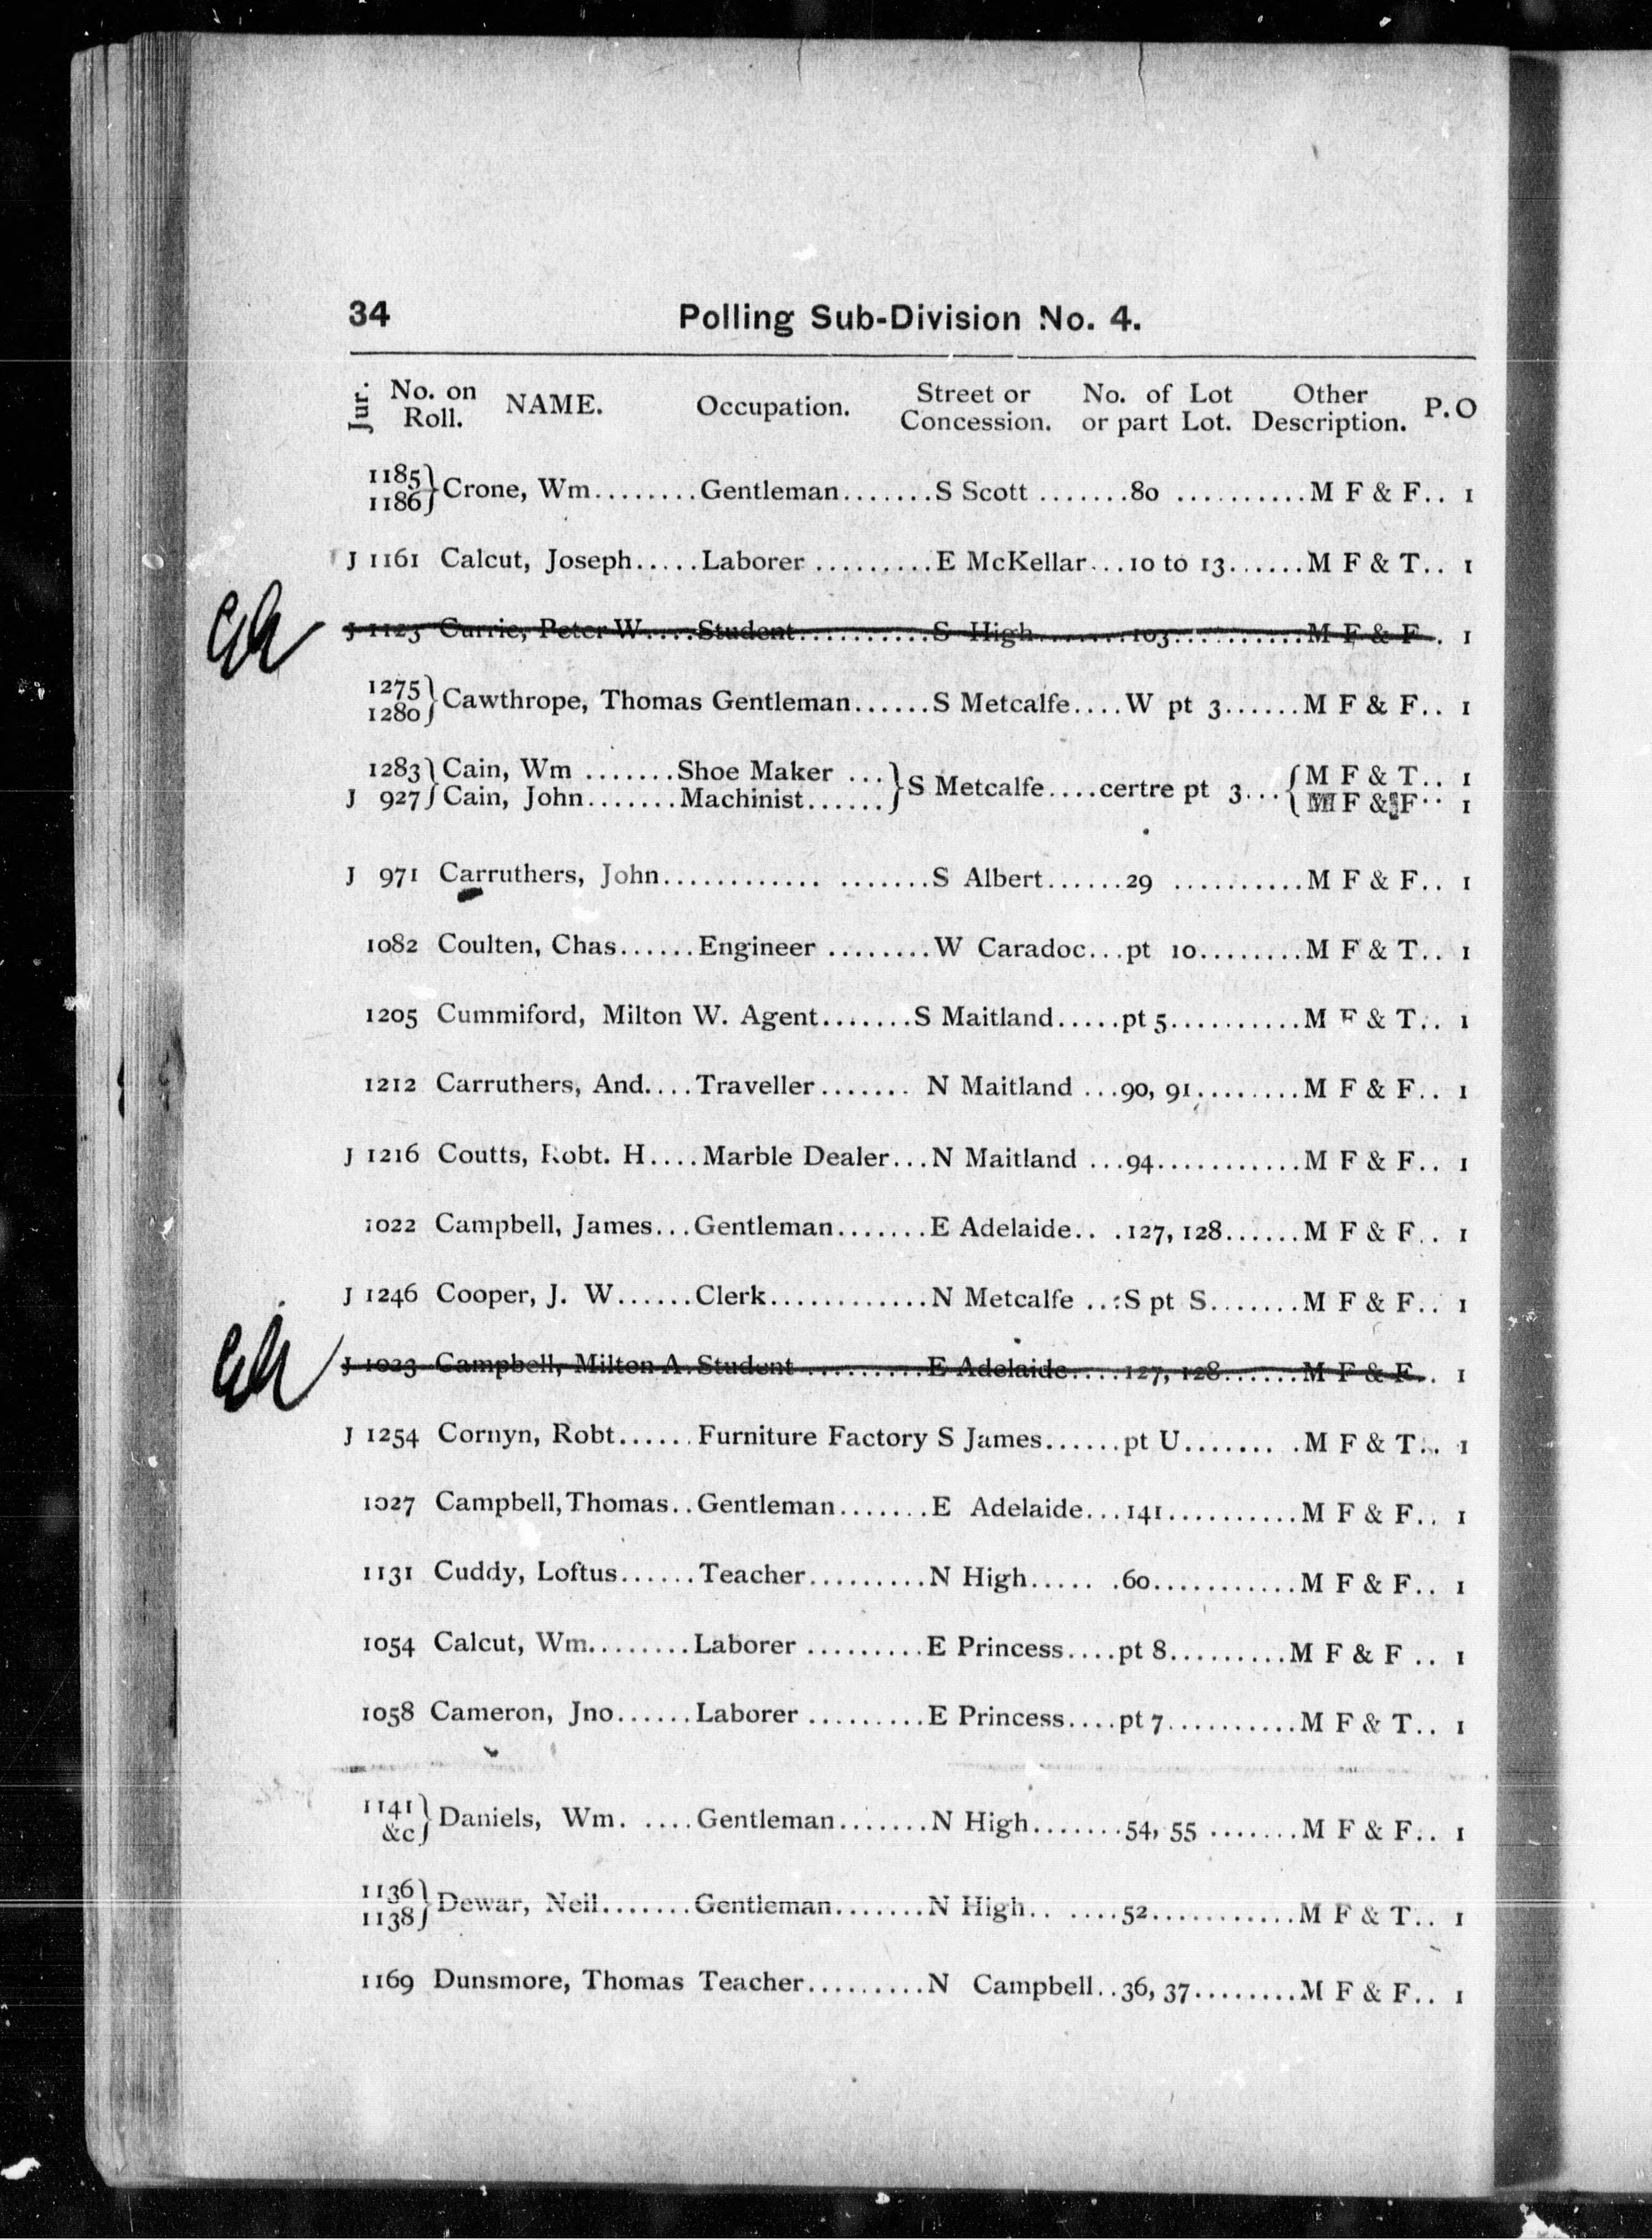 34 Polling Sub-Division No. 4.
Jur. No. on Roll. NAME. Occupation. Street or Concession. No. of Lot or part Lot. Other Description. P.O
1185 1186} Crone, Wm........Gentleman.......S Scott .......80 ..........M F & F.. 1
J 1161 Calcut, Joseph.....Laborer .........E McKellar...10 to 13......M F & T.. 1
J 1123 Currie, Peter W....Student..........S High.......103..........M F & F.. 1
1275 1280} Cawthrope, Thomas Gentleman......S Metcalfe....W pt 3......M F & F.. 1
1283} Cain, Wm .......Shoe Maker ...} S Metcalfe....certre pt 3...{M F & T.. 1
J 927} Cain, John.......Machinist......} {M F & F.. 1
J 971 Carruthers, John............ .......S Albert......29 ..........M F & F.. 1
1082 Coulten, Chas......Engineer ........W Caradoc...pt 10........M F & T.. 1
1205 Cummiford, Milton W. Agent.......S Maitland.....pt 5..........M F & T.. 1
1212 Carruthers, And....Traveller....... N Maitland ...90, 91........M F & F.. 1
J 1216 Coutts, Robt. H....Marble Dealer...N Maitland ...94...........M F & F.. 1
1022 Campbell, James...Gentleman.......E Adelaide.. .127, 128......M F & F.. 1
J 1246 Cooper, J. W......Clerk............N Metcalfe ..:S pt S.......M F & F.. 1
J 1023 Campbell, Milton A. Student .........E Adelaide....127, 128......M F & F.. 1
J 1254 Cornyn, Robt......Furniture Factory S James......pt U....... .M F & T.. 1
1027 Campbell, Thomas..Gentleman.......E Adelaide...141..........M F & F.. 1
1131 Cuddy, Loftus......Teacher.........N High..... .60...........M F & F.. 1
1054 Calcut, Wm........Laborer .........E Princess....pt 8.........M F & F .. 1
1058 Cameron, Jno......Laborer .........E Princess....pt 7..........M F & T.. 1
1141 &c} Daniels, Wm. ....Gentleman.......N High.......54, 55 .......M F & F.. 1
1136 1138} Dewar, Neil.......Gentleman.......N High.. ....52...........M F & T.. 1
1169 Dunsmore, Thomas Teacher.........N Campbell..36, 37........M F & F.. 1